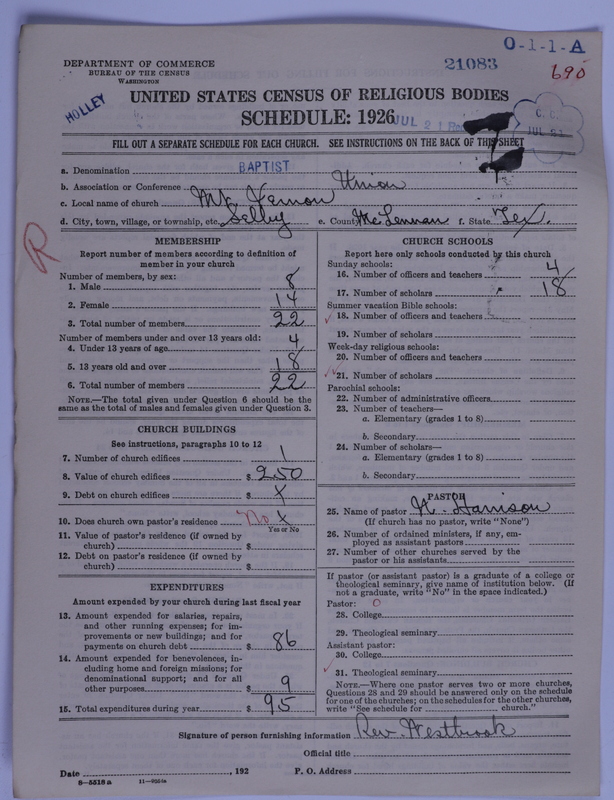 O-1-1-A
DEPARTMENT OF COMMERCE
BUREAU OF THE CENSUS
WASHINGTON
21083
690
HOLLEY
UNITED STATES CENSUS OF RELIGIOUS BODIES
SCHEDULE: 1926
JUL 21
C. C.
JUL
FILL OUT A SEPARATE SCHEDULE FOR EACH CHURCH. SEE INSTRUCTIONS ON THE BACK OF THIS SHEET
a. Denomination BAPTIST
b. Association or Conference Union
c. Local name of church Mt. Vernon
d. City, town, village, or township, etc. Selby e. County McLennan f. State Tex.
R
MEMBERSHIP
Report number of members according to definition of
member in your church
Number of members, by sex:
1. Male 8
2. Female 14
3. Total number of members 22
Number of members under and over 13 years old:
4. Under 13 years of age 4
5. 13 years old and over 18
6. Total number of members 22
NOTE.—The total given under Question 6 should be the
same as the total of males and females given under Question 3.
CHURCH BUILDINGS
See instructions, paragraphs 10 to 12
7. Number of church edifices 1
8. Value of church edifices $ 250
9. Debt on church edifices $ x
10. Does church own pastor's residence No x
Yes or No
11. Value of pastor's residence (if owned by
church) $
12. Debt on pastor's residence (if owned by
church) $
EXPENDITURES
Amount expended by your church during last fiscal year
13. Amount expended for salaries, repairs,
and other running expenses; for im-
provements or new buildings; and for
payments on church debt $ 86
14. Amount expended for benevolences, in-
cluding home and foreign missions; for
denominational support; and for all
other purposes $ 9
15. Total expenditures during year $ 95
CHURCH SCHOOLS
Report here only schools conducted by this church
Sunday schools:
16. Number of officers and teachers 4
17. Number of scholars 18
Summer vacation Bible schools:
18. Number of officers and teachers
19. Number of scholars
Week-day religious schools:
20. Number of officers and teachers
21. Number of scholars
Parochial schools:
22. Number of administrative officers
23. Number of teachers—
a. Elementary (grades 1 to 8)
b. Secondary
24. Number of scholars—
a. Elementary (grades 1 to 8)
b. Secondary
PASTOR
25. Name of pastor N. Harrison
(If church has no pastor, write "None")
26. Number of ordained ministers, if any, em-
ployed as assistant pastors
27. Number of other churches served by the
pastor or his assistants
If pastor (or assistant pastor) is a graduate of a college or
theological seminary, give name of institution below. (If
not a graduate, write "No" in the space indicated.)
Pastor: 0
28. College
29. Theological seminary
Assistant pastor:
30. College
31. Theological seminary
NOTE.—Where one pastor serves two or more churches,
Questions 28 and 29 should be answered only on the schedule
for one of the churches; on the schedules for the other churches,
write "See schedule for church."
Signature of person furnishing information Rev. Westbrook
Official title
Date , 192 P. O. Address
8-5518a 11-9204a